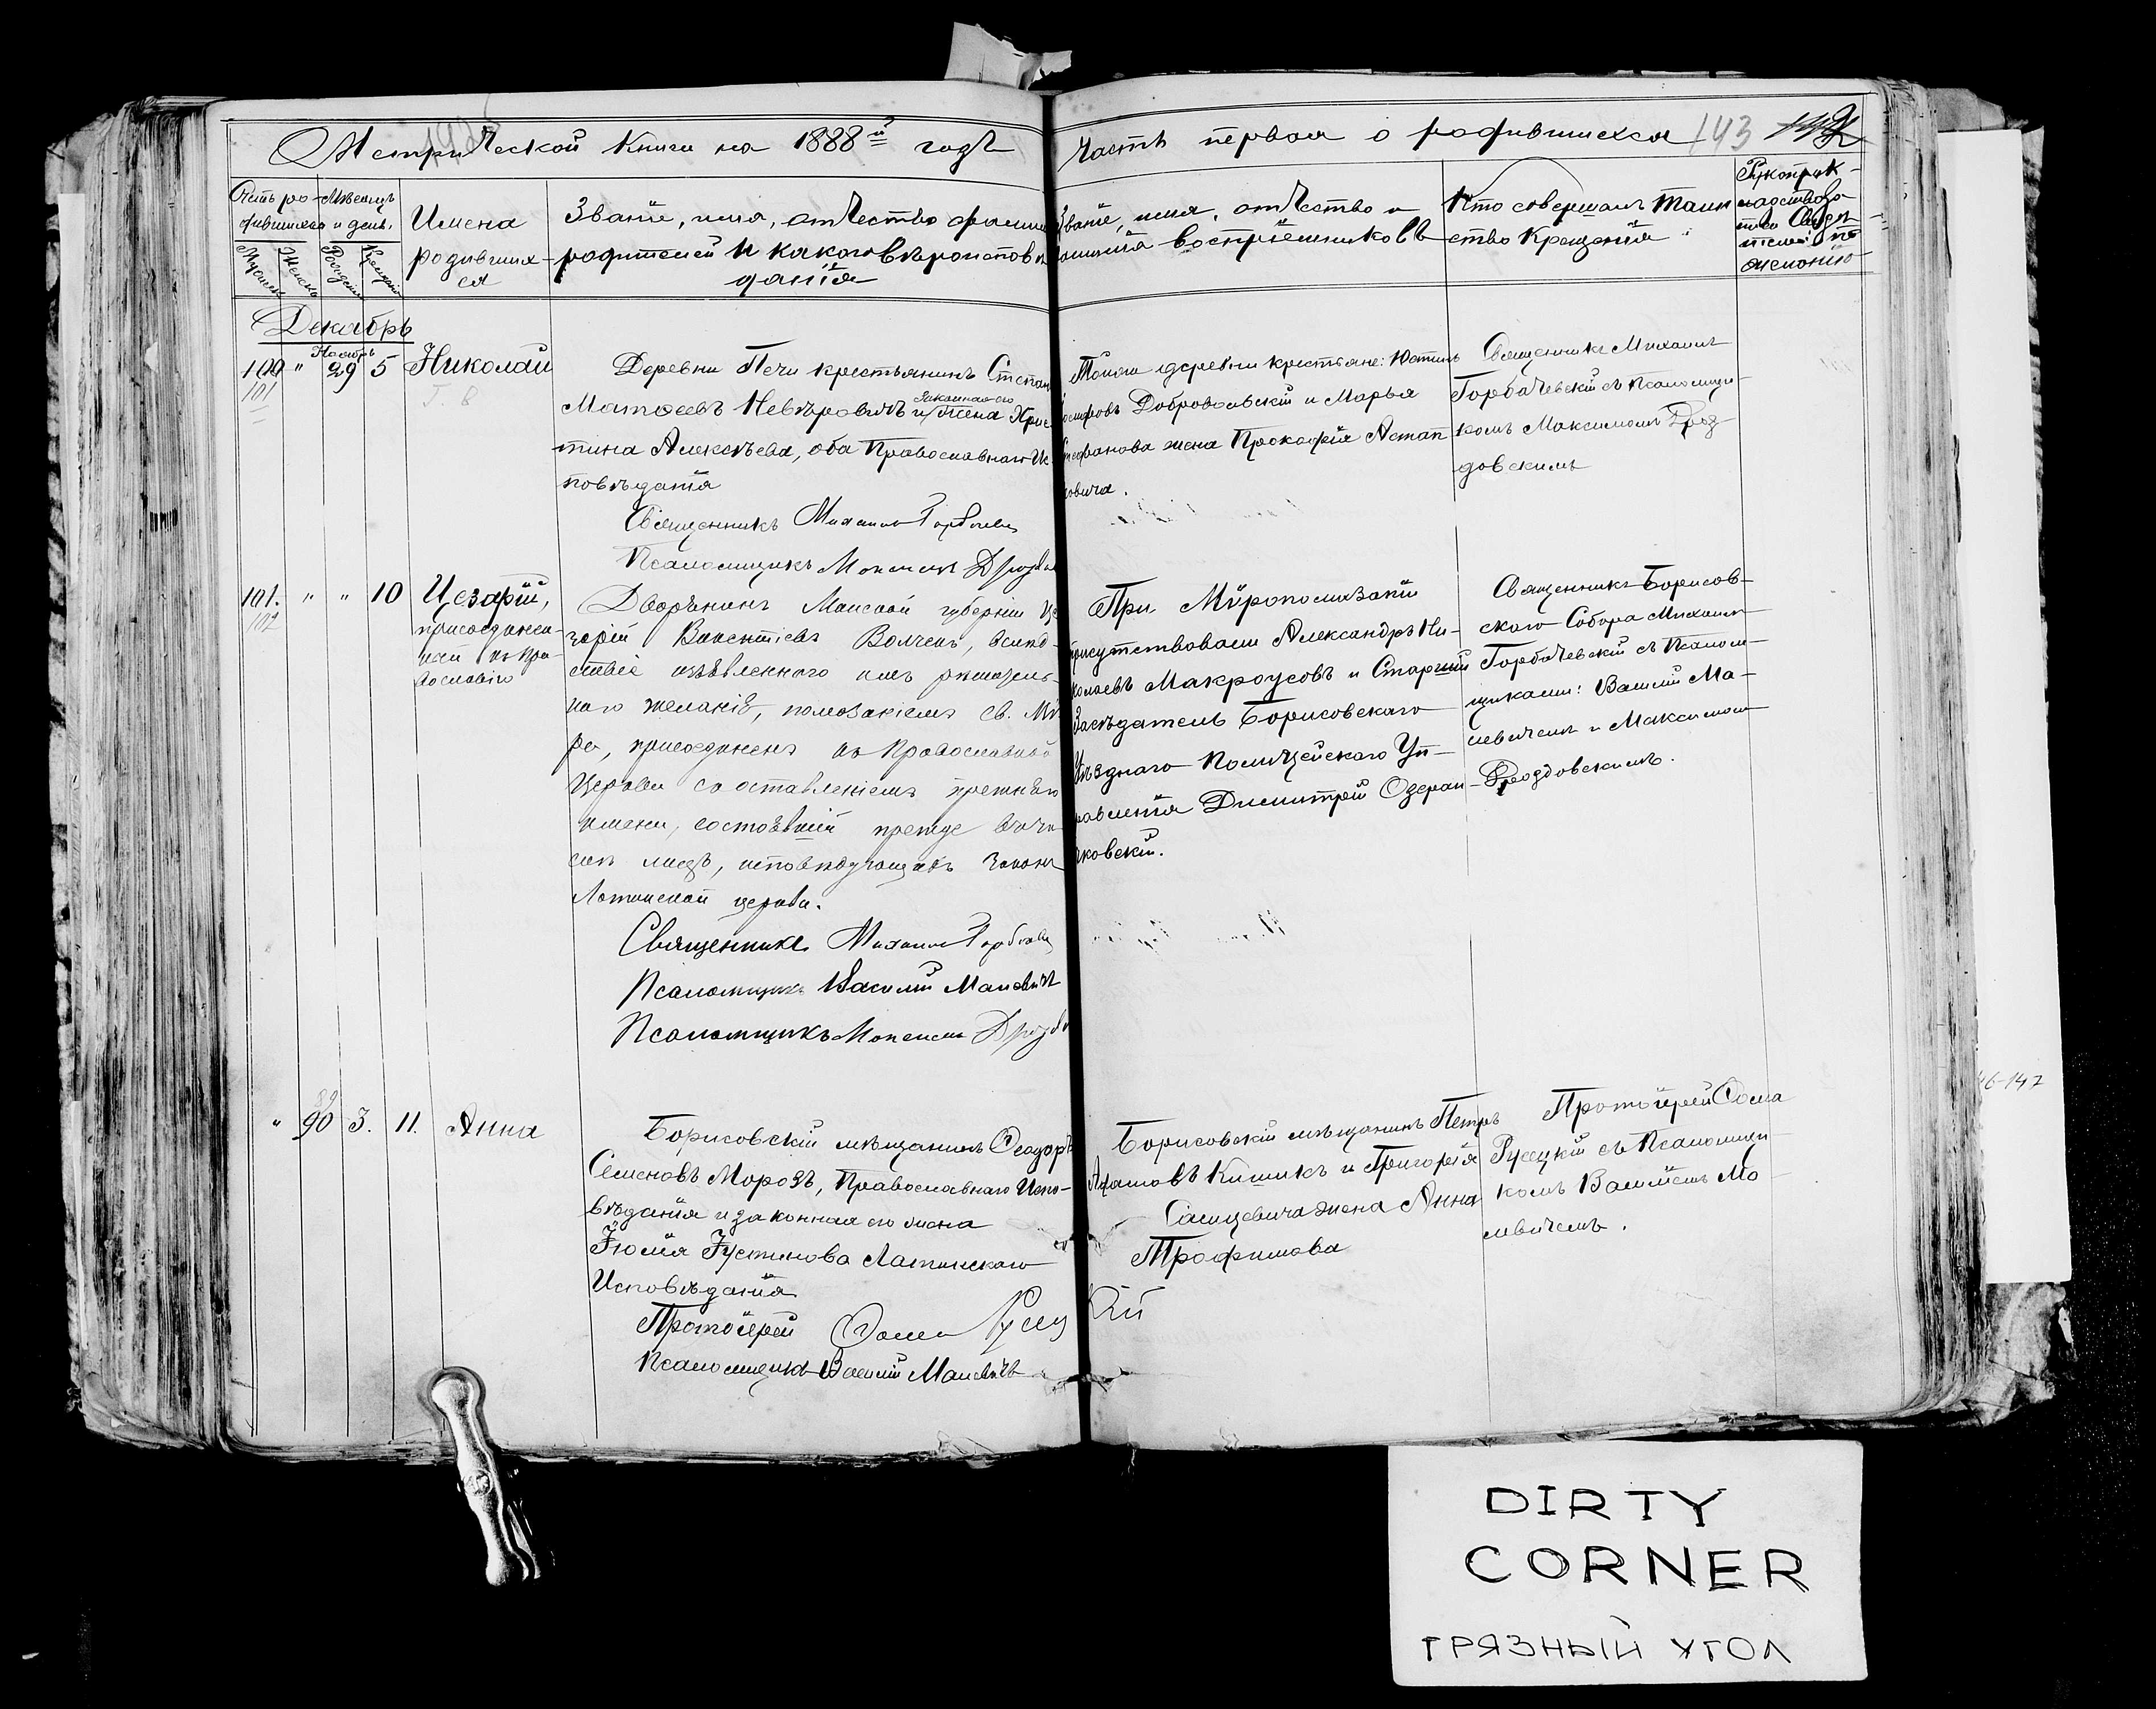 Метрической книги на 1888й годъ
Часть первая о родившихся 143
Счетъ ро-
дившихся
Мѣсяцъ
и день.
Мужеск
Женска
Рожден
Крещенiя
Имена
родивших-
ся
Званiе, имя, отчество фамил
родителей и какого вѣроисповѣ
данiя
Званiе, имя, отчество и
фамилiя воспрiемниковъ
Кто совершалъ таин
ство крещенiя
Рукоприк-
ладство
свидѣ
телей по
желанiю
Декабрь
Ноябрь
100 " 29 5 Николай
101
Деревни Печи крестьянинъ Степан
Матѳеевъ Невѣровичъ и законная его жена Хрис
тина Алексѣева, оба Православнаго Ис
повѣданiя
Священникъ Михаилъ Горбачевс
Псаломщикъ Максимъ Дроздов
Тойже деревни крестьяне: Устинъ
осифовъ Добровольскiй и Марья
тефанова жена Прокофiя Астап
овича.
Священникъ Михаилъ
Горбачевскiй съ Псаломщи-
комъ Максимомъ Дроз
довскимъ
101. " " 10 Цезарiй,
102
присоединен-
ный къ Пра-
вославiю
Дворянинъ Минской губернiи Це
зарiй Викентiевъ Волчекъ, вслѣд-
ствiе изъявленного имъ рѣшитель-
наго желанiя, помазанiемъ Св. Мѵ
ра, присоединенъ къ Православной
Церкви со оставленiемъ прежняго
имени, состоявшiй прежде въ чи
слѣ лицъ, исповѣдующихъ законъ
Латинской церкви.
Священникъ Михаилъ Горбачевс
Псаломщикъ Василiй Малевичъ
Псаломщикъ Максимъ Дроздов
При Мѵропомазанiи
присутствовали Александръ Ни-
колаевъ Макроусовъ и Старшiй
Засѣдатель Борисовскаго
Уѣзднаго Полицейскаго Уп-
равленiя Димитрiй Озеран-
ковскiй.
Священникъ Борисов-
скаго Собора Михаилъ
Горбачевскiй съ Псалом-
щиками: Василiй Ма-
левичемъ и Максимом
Дроздовскимъ.
89
" 90 3. 11. Анна
Борисовскiй мѣщанинъ Ѳеодоръ
Семеновъ Морозъ, Православнаго Испо-
вѣданiя и законная его жена
Юлiя Іустинова Латинскаго
Исповѣданiя
Протоiерей Ѳома Русец кiй
Псаломщикъ Василiй Малевичъ
Борисовскiй мѣщанинъ Петръ
Кишикъ и Григорiя
жена Анна
Трофимова
Протоiерей Ѳома
Русецкiй съ Псаломщи-
комъ Василiемъ Ма
левичемъ.
46-147
DIRTY
CORNER
ГРЯЗНЫЙ УГОЛ